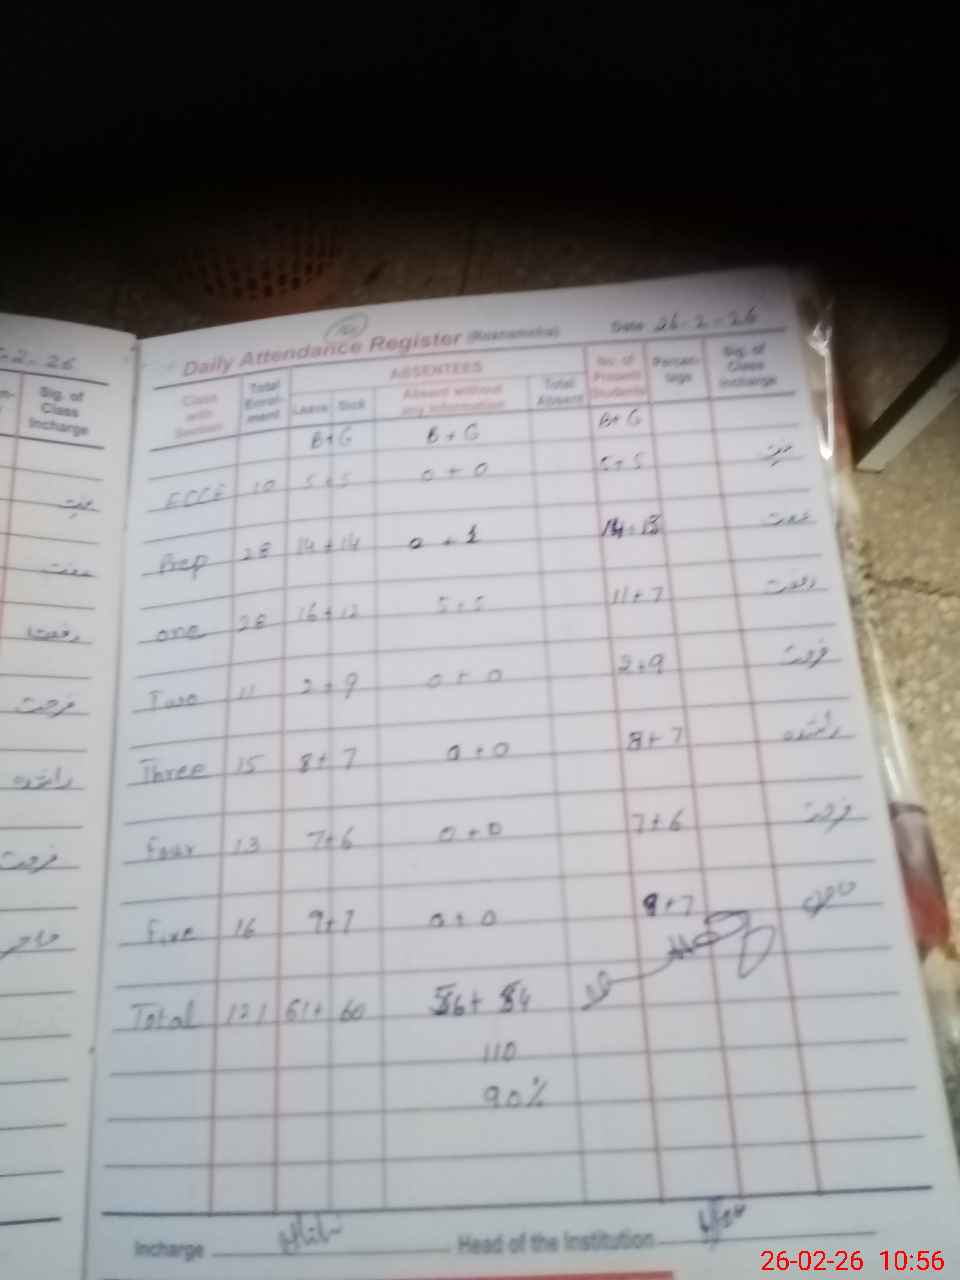 -2-26
Sig. of
Class
Incharge
رفعت
فرحت
راشدہ
فرحت
Daily Attendance Register (Roznamcha) Date 26-2-26
Class with Section Total Enrol-ment ABSENTEES No. of Present Students Percen-tage Sig. of Class Incharge
Leave Sick Absent without any information Total Absent
B+G B+G B+G
ECCE 10 5+5 0+0 5+5
Prep 28 14+14 0+1 14+13
one 28 16+12 5+5 11+7 رفعت
Two 11 2+9 0+0 2+9 فرحت
Three 15 8+7 0+0 8+7 راشدہ
Four 13 7+6 0+0 7+6 فرحت
Five 16 9+7 0+0 9+7
Total 121 61+60 56+54
110
90%
Incharge Head of the Institution
26-02-26 10:56